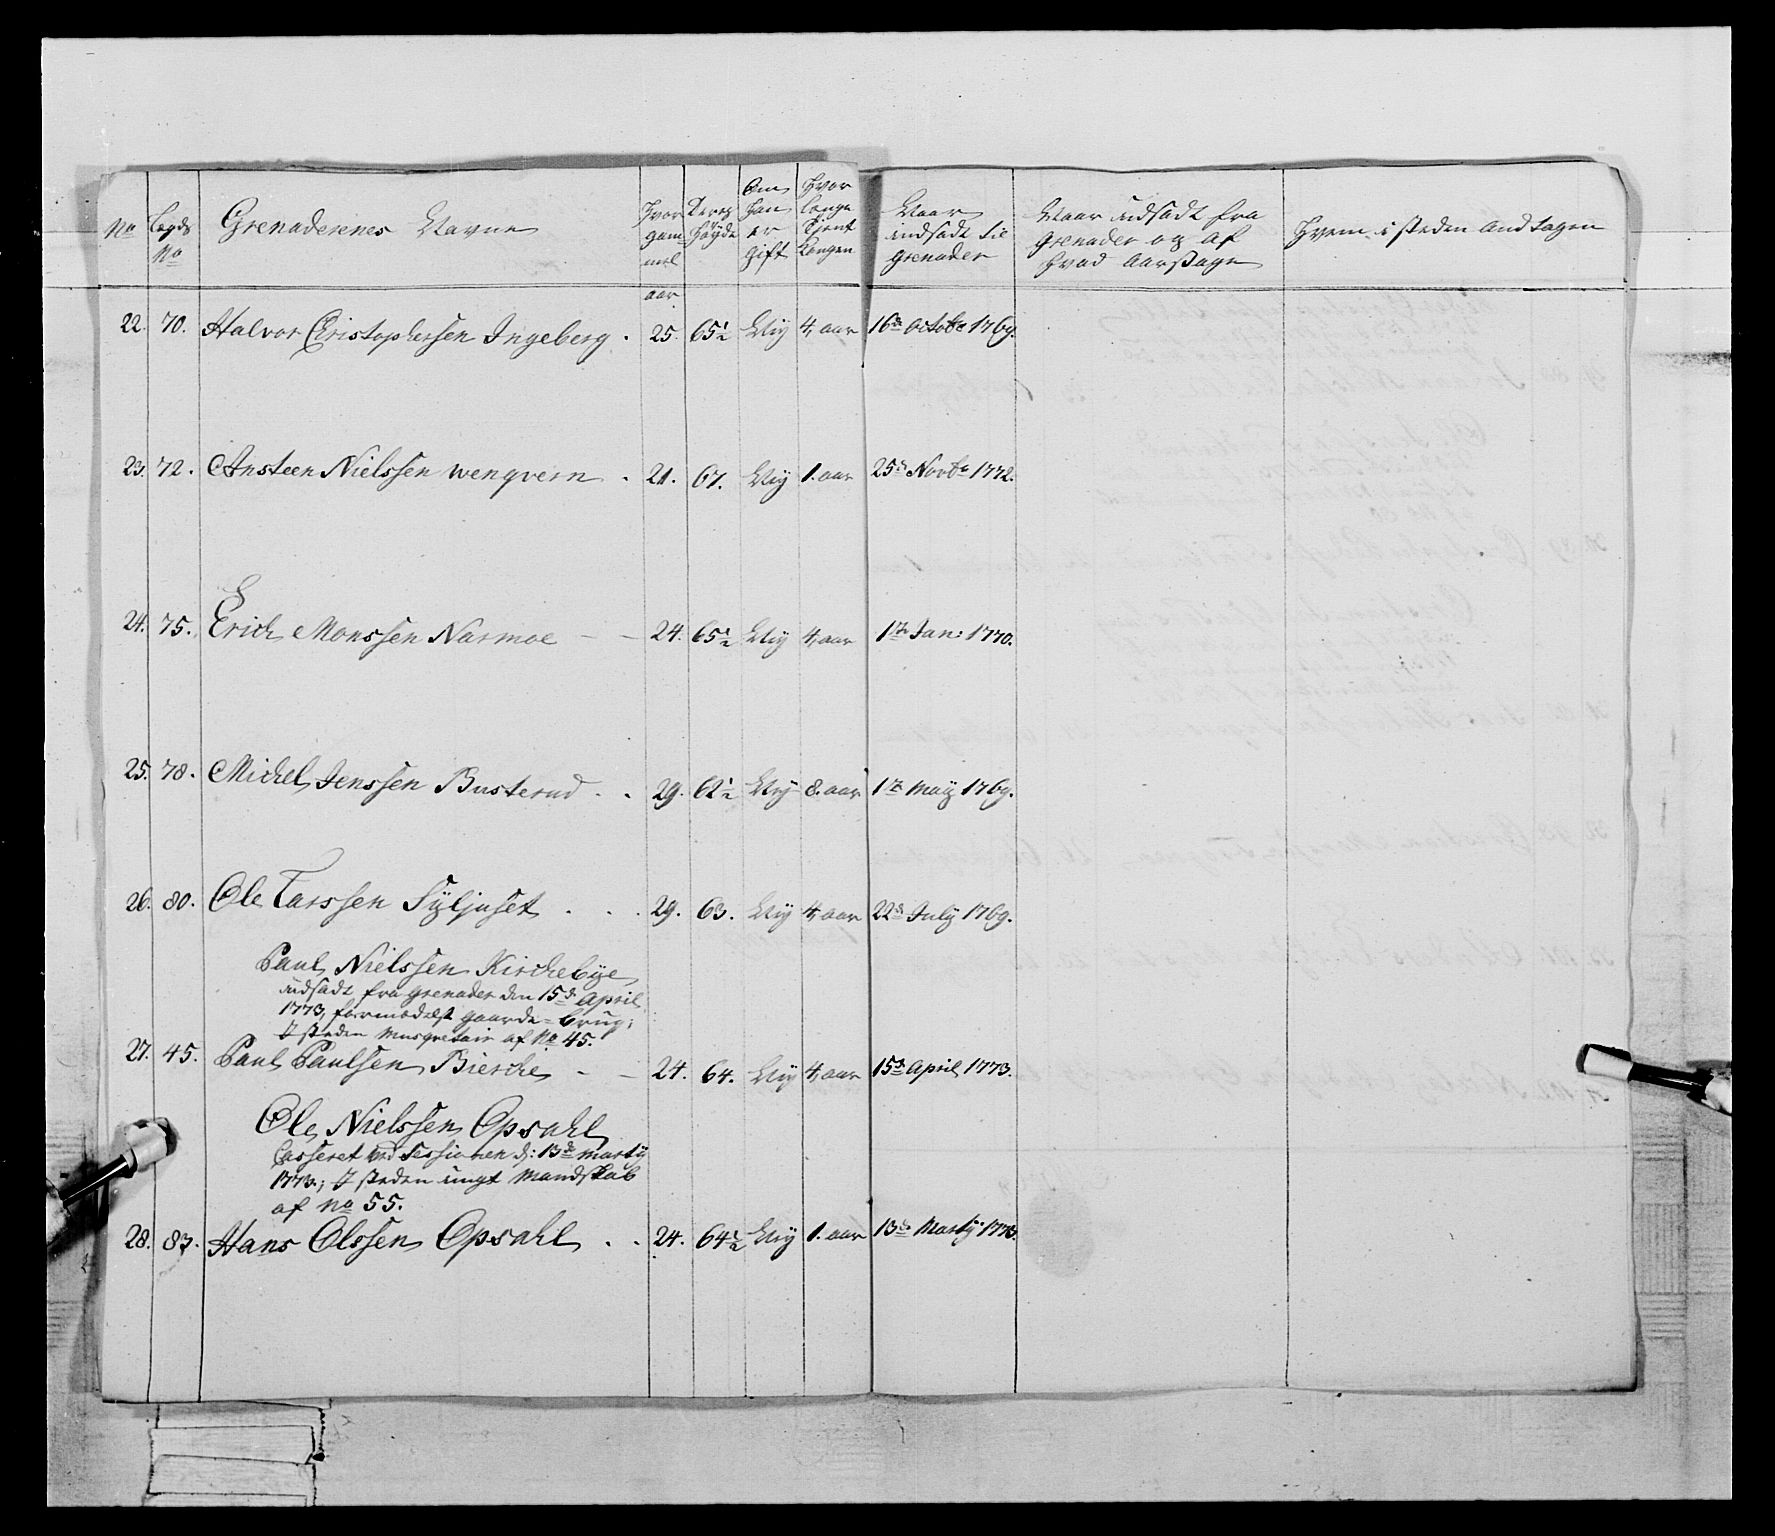 No
Legds No
Grenaderenes Navne
Hvor gammel aar.
Deres Høyde
Om Han er gift
Hvor lenge Tient Kongen
Naar indsadt til Grenader
Naar udsadt fra Grenader og af Hvad Aarsage
Hvem i steden andtagen
22. 70. Halvor Christophersen Ingeberg . 25. 65½ Nej 4, aar 16de octobr 1769.
23. 72. Ansteen Nielssen Wenqvern . 21. 67. Nej 1. aar 25de Novbr 1772.
24. 75. Erich Monssen Narmoe - - 24. 65½ Nej 4, aar 1te Jan: 1770.
25. 78. Michel Jenssen Busterud . . 29. 62½ Nej 8. aar 1te Maij 1769.
26. 80. Ole Larssen Syljuset . . . 29. 63. Nej 4, aar 22de July 1769.
Paul Nielssen Kirchebye
udsadt fra Grenader den 15de April
1773, formedelst gaarde-brug;
I steden Musqvetair af No 45.
27. 45. Paul Paulsen Bierche - - 24. 64. Nej 4, aar 15de April 1773.
Ole Nielssen Opsahl
Casseret ved Sessionen d: 13de Martij
1773.; I steden ungt Mandskab
af No 55.
28. 83. Hans Olssen Opsahl . . 24. 64½ Nej 1. aar 13de Martij 1773.